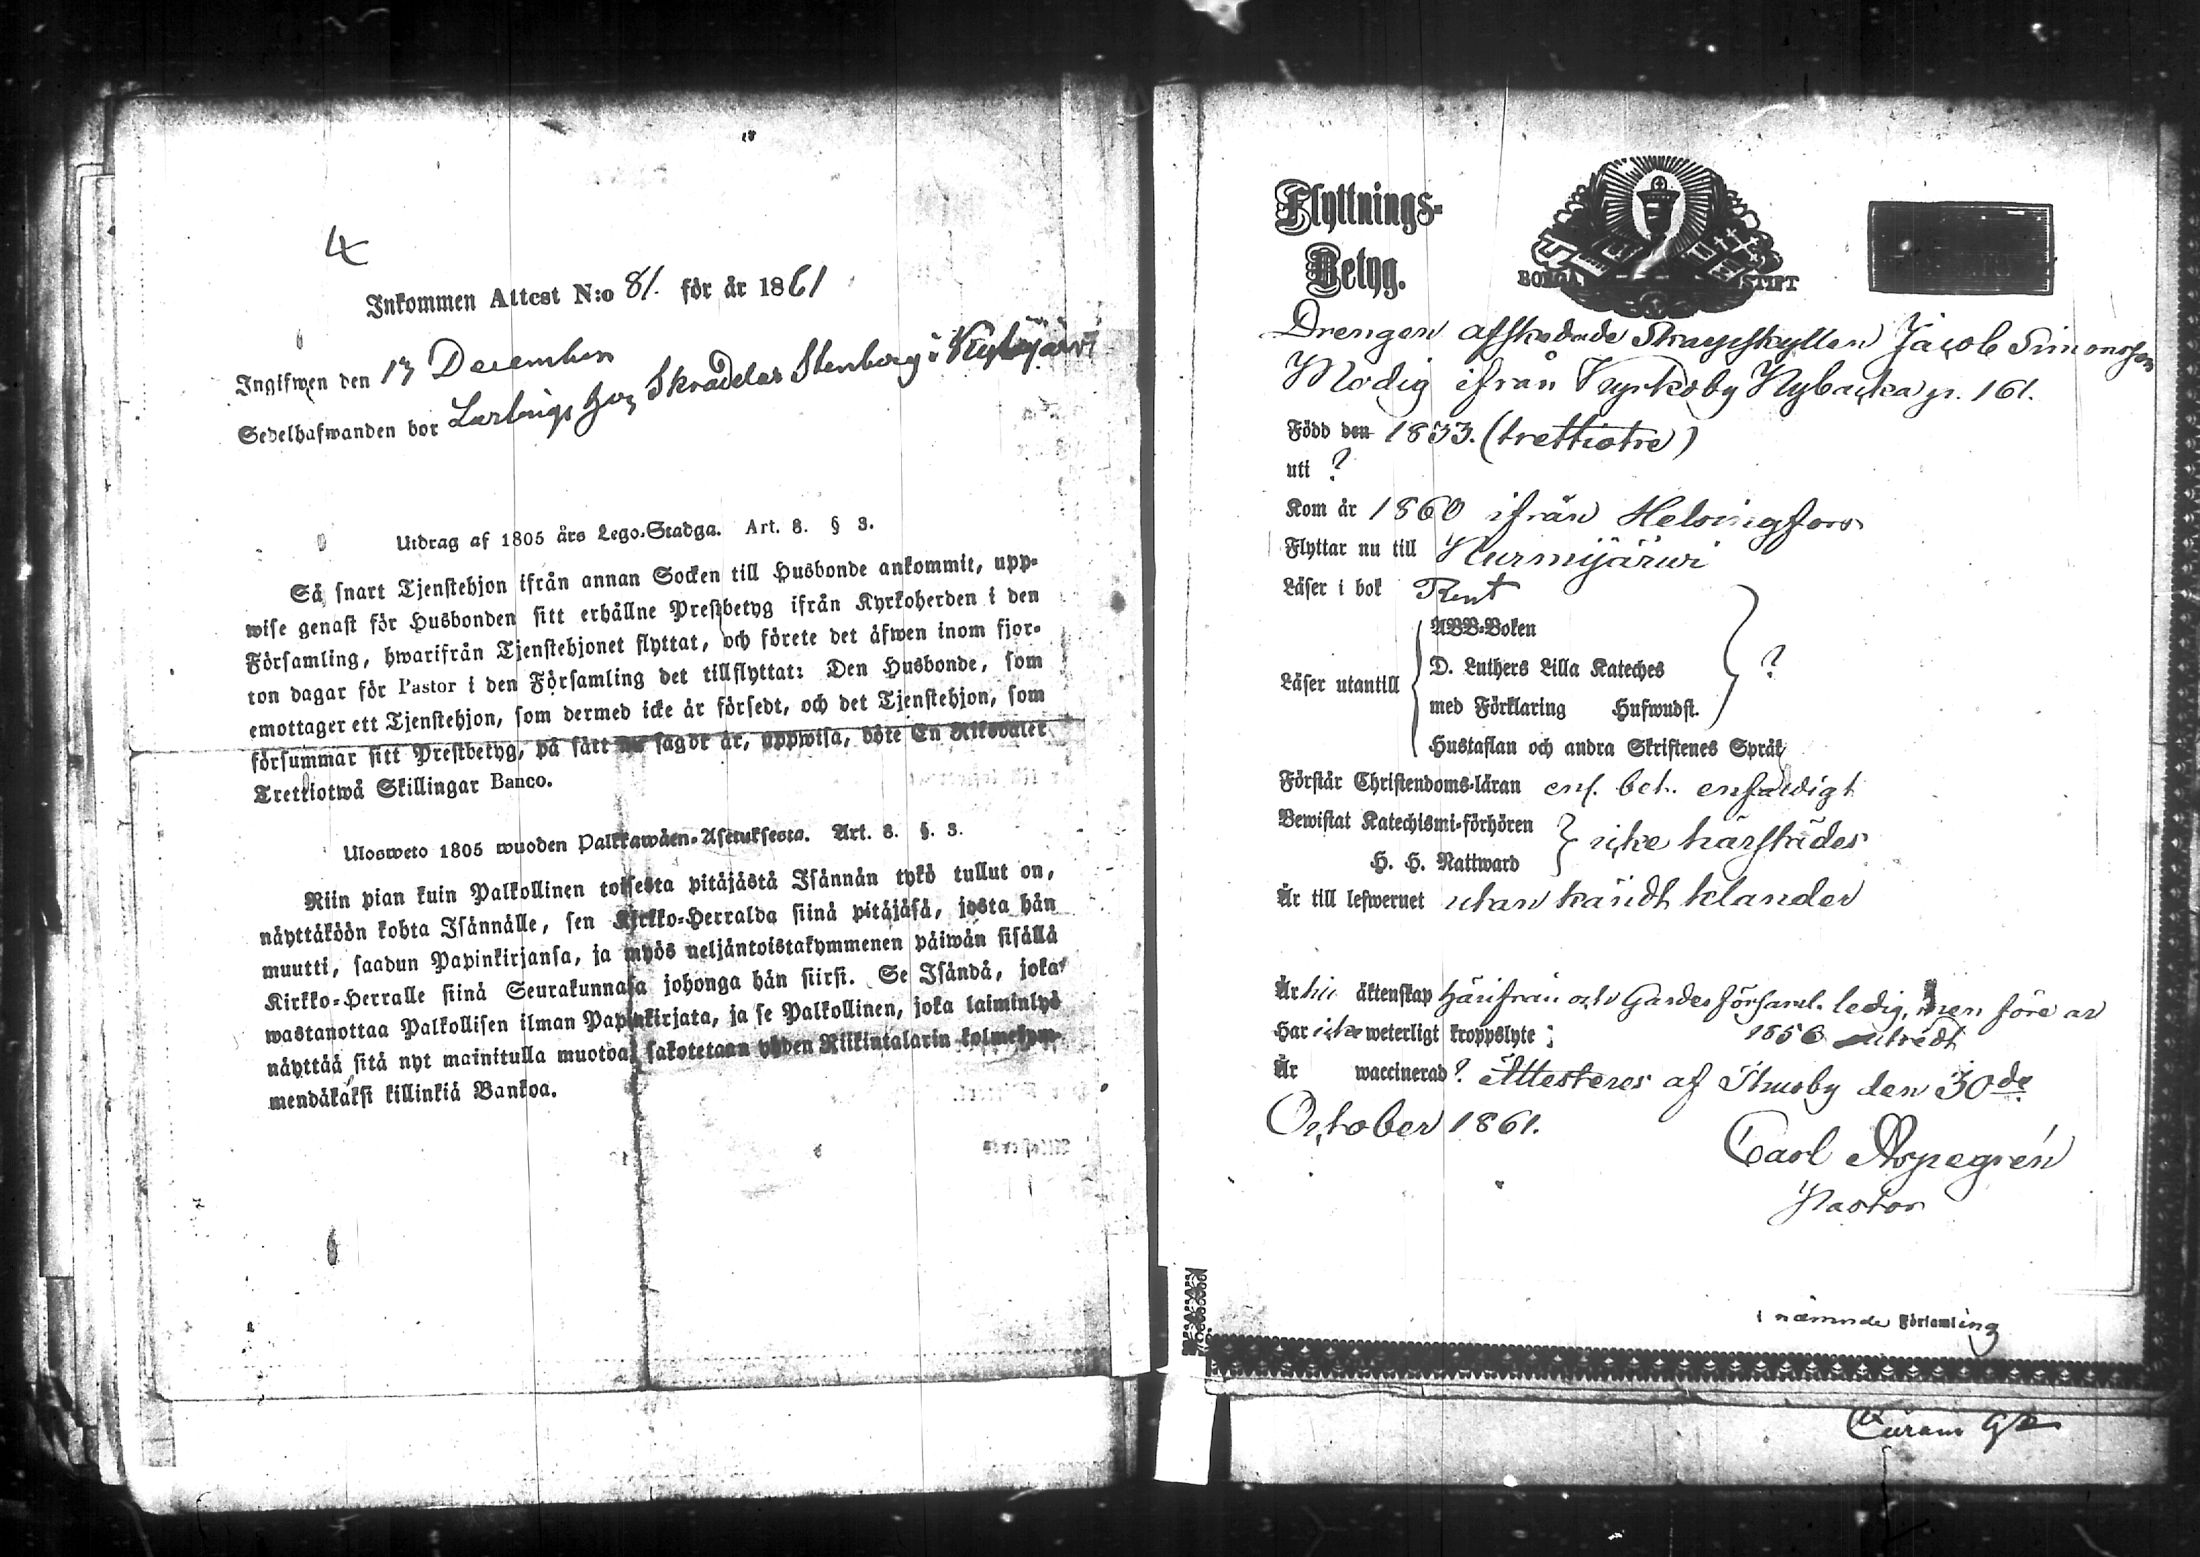 4
Inkommen Attest N:o 81. för år 1861
Ingifwen den 13 December
Sedelhafwanden bor hos Skräddar Stenberg i
Utdrag af 1805 års Lego-Stadga. Art. 8. § 3.
Så snart Tjenstehjon ifrån annan Socken till Husbonde ankommit, upp-
wise genast för Husbonden sitt erhållne Prestbetyg ifrån Kyrkoherden i den
Församling, hwarifrån Tjenstehjonet flyttat, och förete det äfwen inom fjor-
ton dagar för Pastor i den Församling det tillflyttat: Den Husbonde, som
emottager ett Tjenstehjon, som dermed icke är försedt, och det Tjenstehjon, som
försummar sitt Prestbetyg, på sätt nu sagdt är, uppwisa, böte En Riksdaler
Trettiotwå Skillingar Banco.
Ulosweto 1805 wuoden Palkkawäen-Asetuksesta. Art. 8. §. 3.
Niin pian kuin Palkollinen toisesta pitäjästä Isännän tykö tullut on,
näyttäköön kohta Isännälle, sen Kirkko-Herralda siinä pitäjäsä, josta hän
muutti, saadun Papinkirjansa, ja myös neljäntoistakymmenen päiwän sisällä
Kirkko-Herralle siinä Seurakunnasa johonga hän siirsi. Se Isändä, joka
wastanottaa Palkollisen ilman Papinkirjata, ja se Palkollinen, joka laiminlyö
näyttää sitä nyt mainitulla muotoa, sakotetaan yhden Riikintalarin kolmekym-
mendäkaksi killinkiä Bankoa.
Flyttnings-
Betyg.
BORGÅ STIFT
Drengen afskedade Jacob Simonsson
Modig ifrån Kyrkoby Nybacka gr. 161.
Född den 1833. (trettiotre)
uti ?
Kom år 1860 ifrån Helsingfors
Flyttar nu till Nurmijärwi
Läser i bok Rent
Läser utantill
ABB-Boken
D. Luthers Lilla Kateches
med Förklaring Hufwudst.
?
Hustaflan och andra Skriftenes Språk
Förstår Christendoms-läran enl. bet. enfaldigt
Bewistat Katechismi-förhören
H. H. Nattward
icke härstädes
Är till lefwernet utan kändt klander
Är till äktenskap härifrån och Gardesförsaml. ledig, men före år
1856 outredt
Har icke weterligt kroppslyte;
Är waccinerad? Attesteres af Thusby den 30de
October 1861.
Carl Aspegrén
Pastor
i nämnde Församling